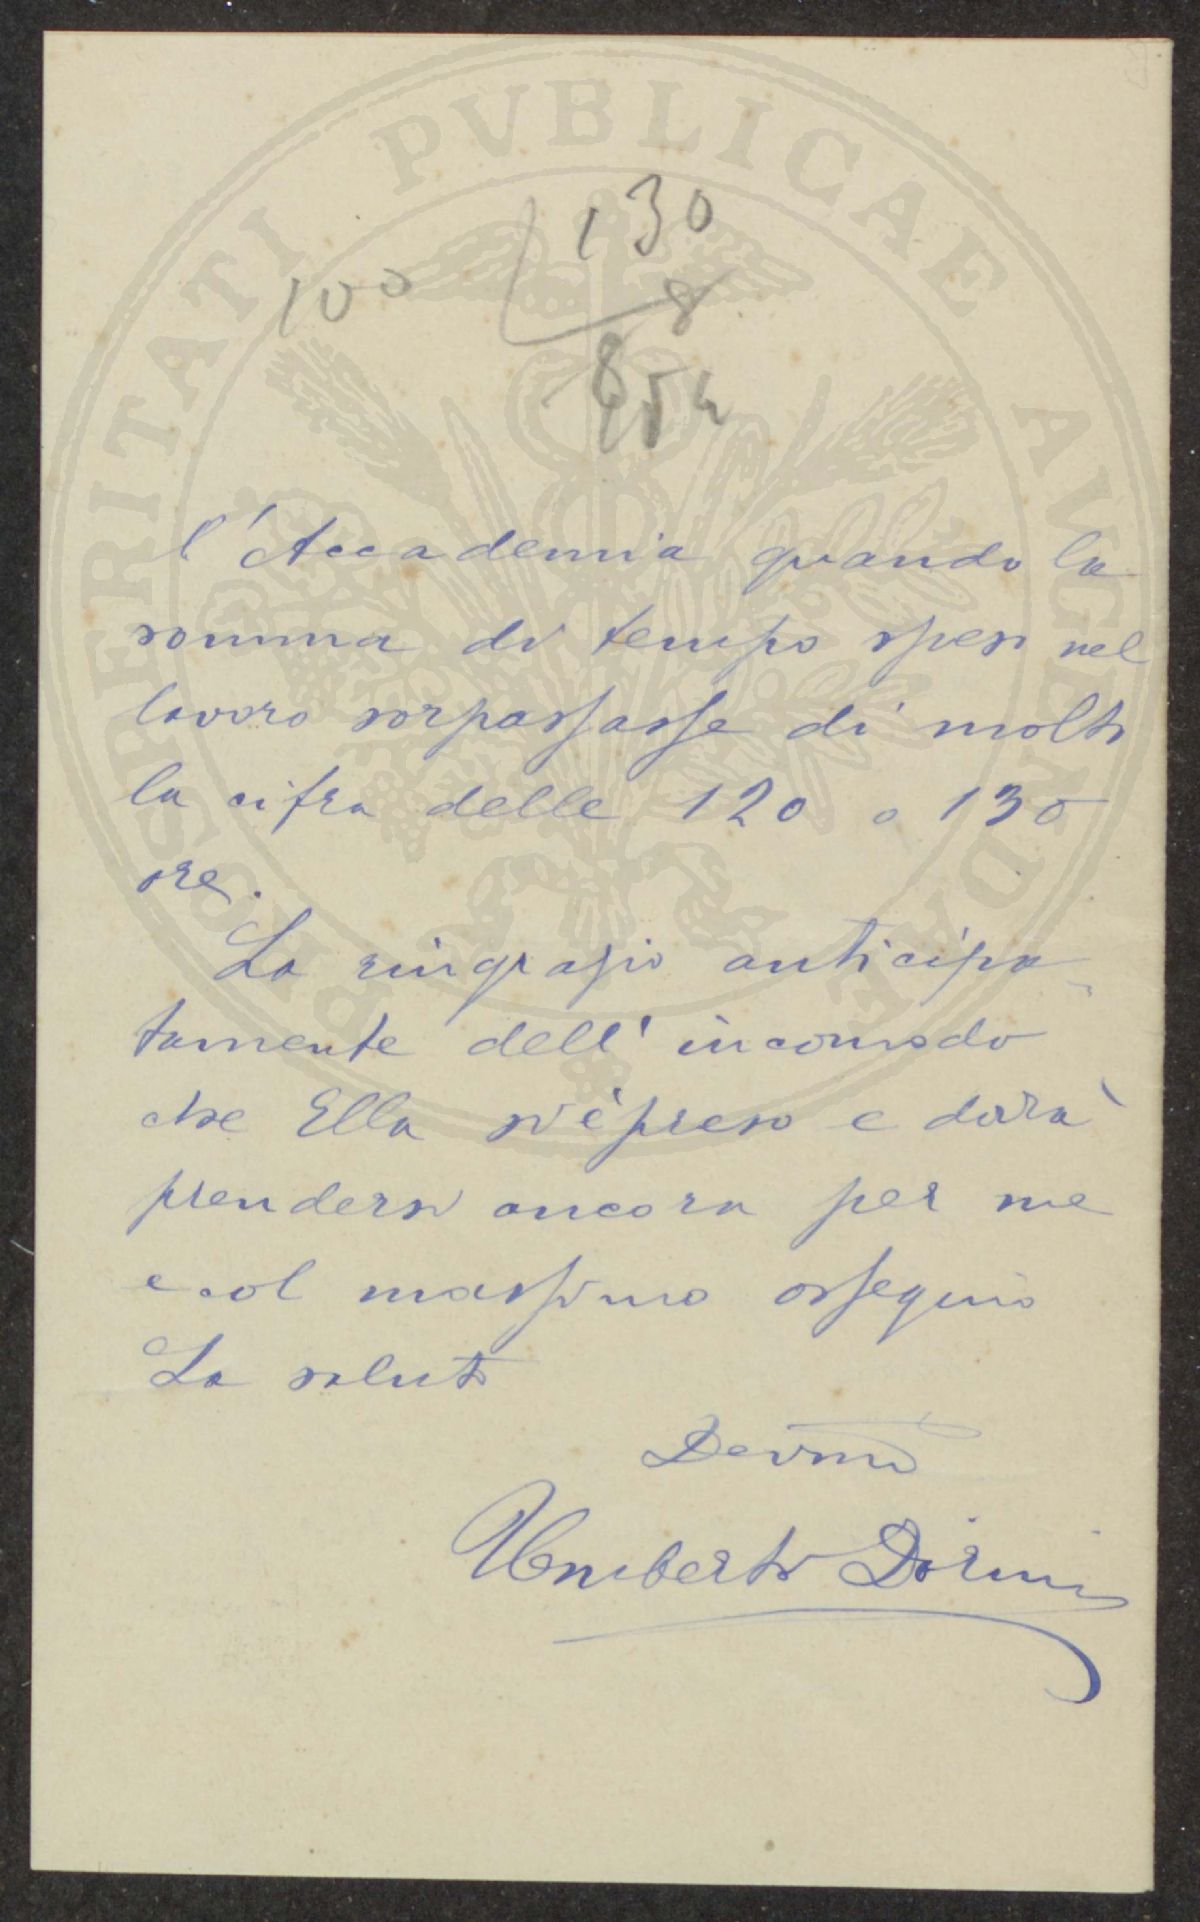 PROSPERITATI PVBLICAE AVGENDAE
130
100
8
l'Accademia quando la
somma di tempo speso nel
lavoro sorpassasse di molto
la cifra delle 120 o 130
ore.
La ringrazio anticipa
tamente dell'incomodo
che Ella si è preso e dovrà
prendersi ancora per me
e col massimo ossequio
La saluto
Devmo
Umberto Dorini